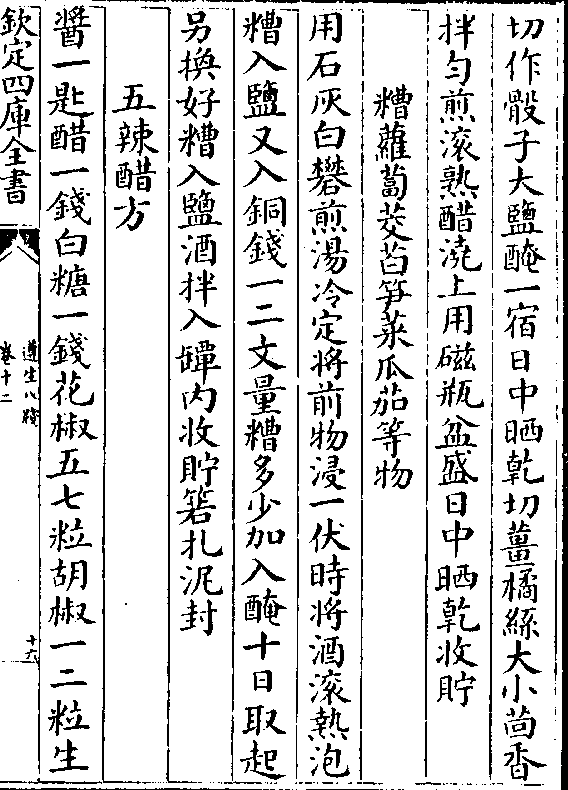 切作骰子大鹽醃一宿日中晒乾切薑橘絲大小茴香
拌勻煎滾熟醋澆上用磁瓶盆盛日中晒乾收貯
糟蘿蔔茭苩笋菜瓜茄等物
用石灰白礬煎湯冷定將前物浸一伏時將酒滾熱泡
糟入鹽又入銅錢一二文量糟多少加入醃十日取起
另換好糟入鹽酒拌入罈內收貯箬扎泥封
五辣醋方
醬一匙醋一錢白糖一錢花椒五七粒胡椒一二粒生
欽定四庫全書
遵生八牋
卷十二
十六